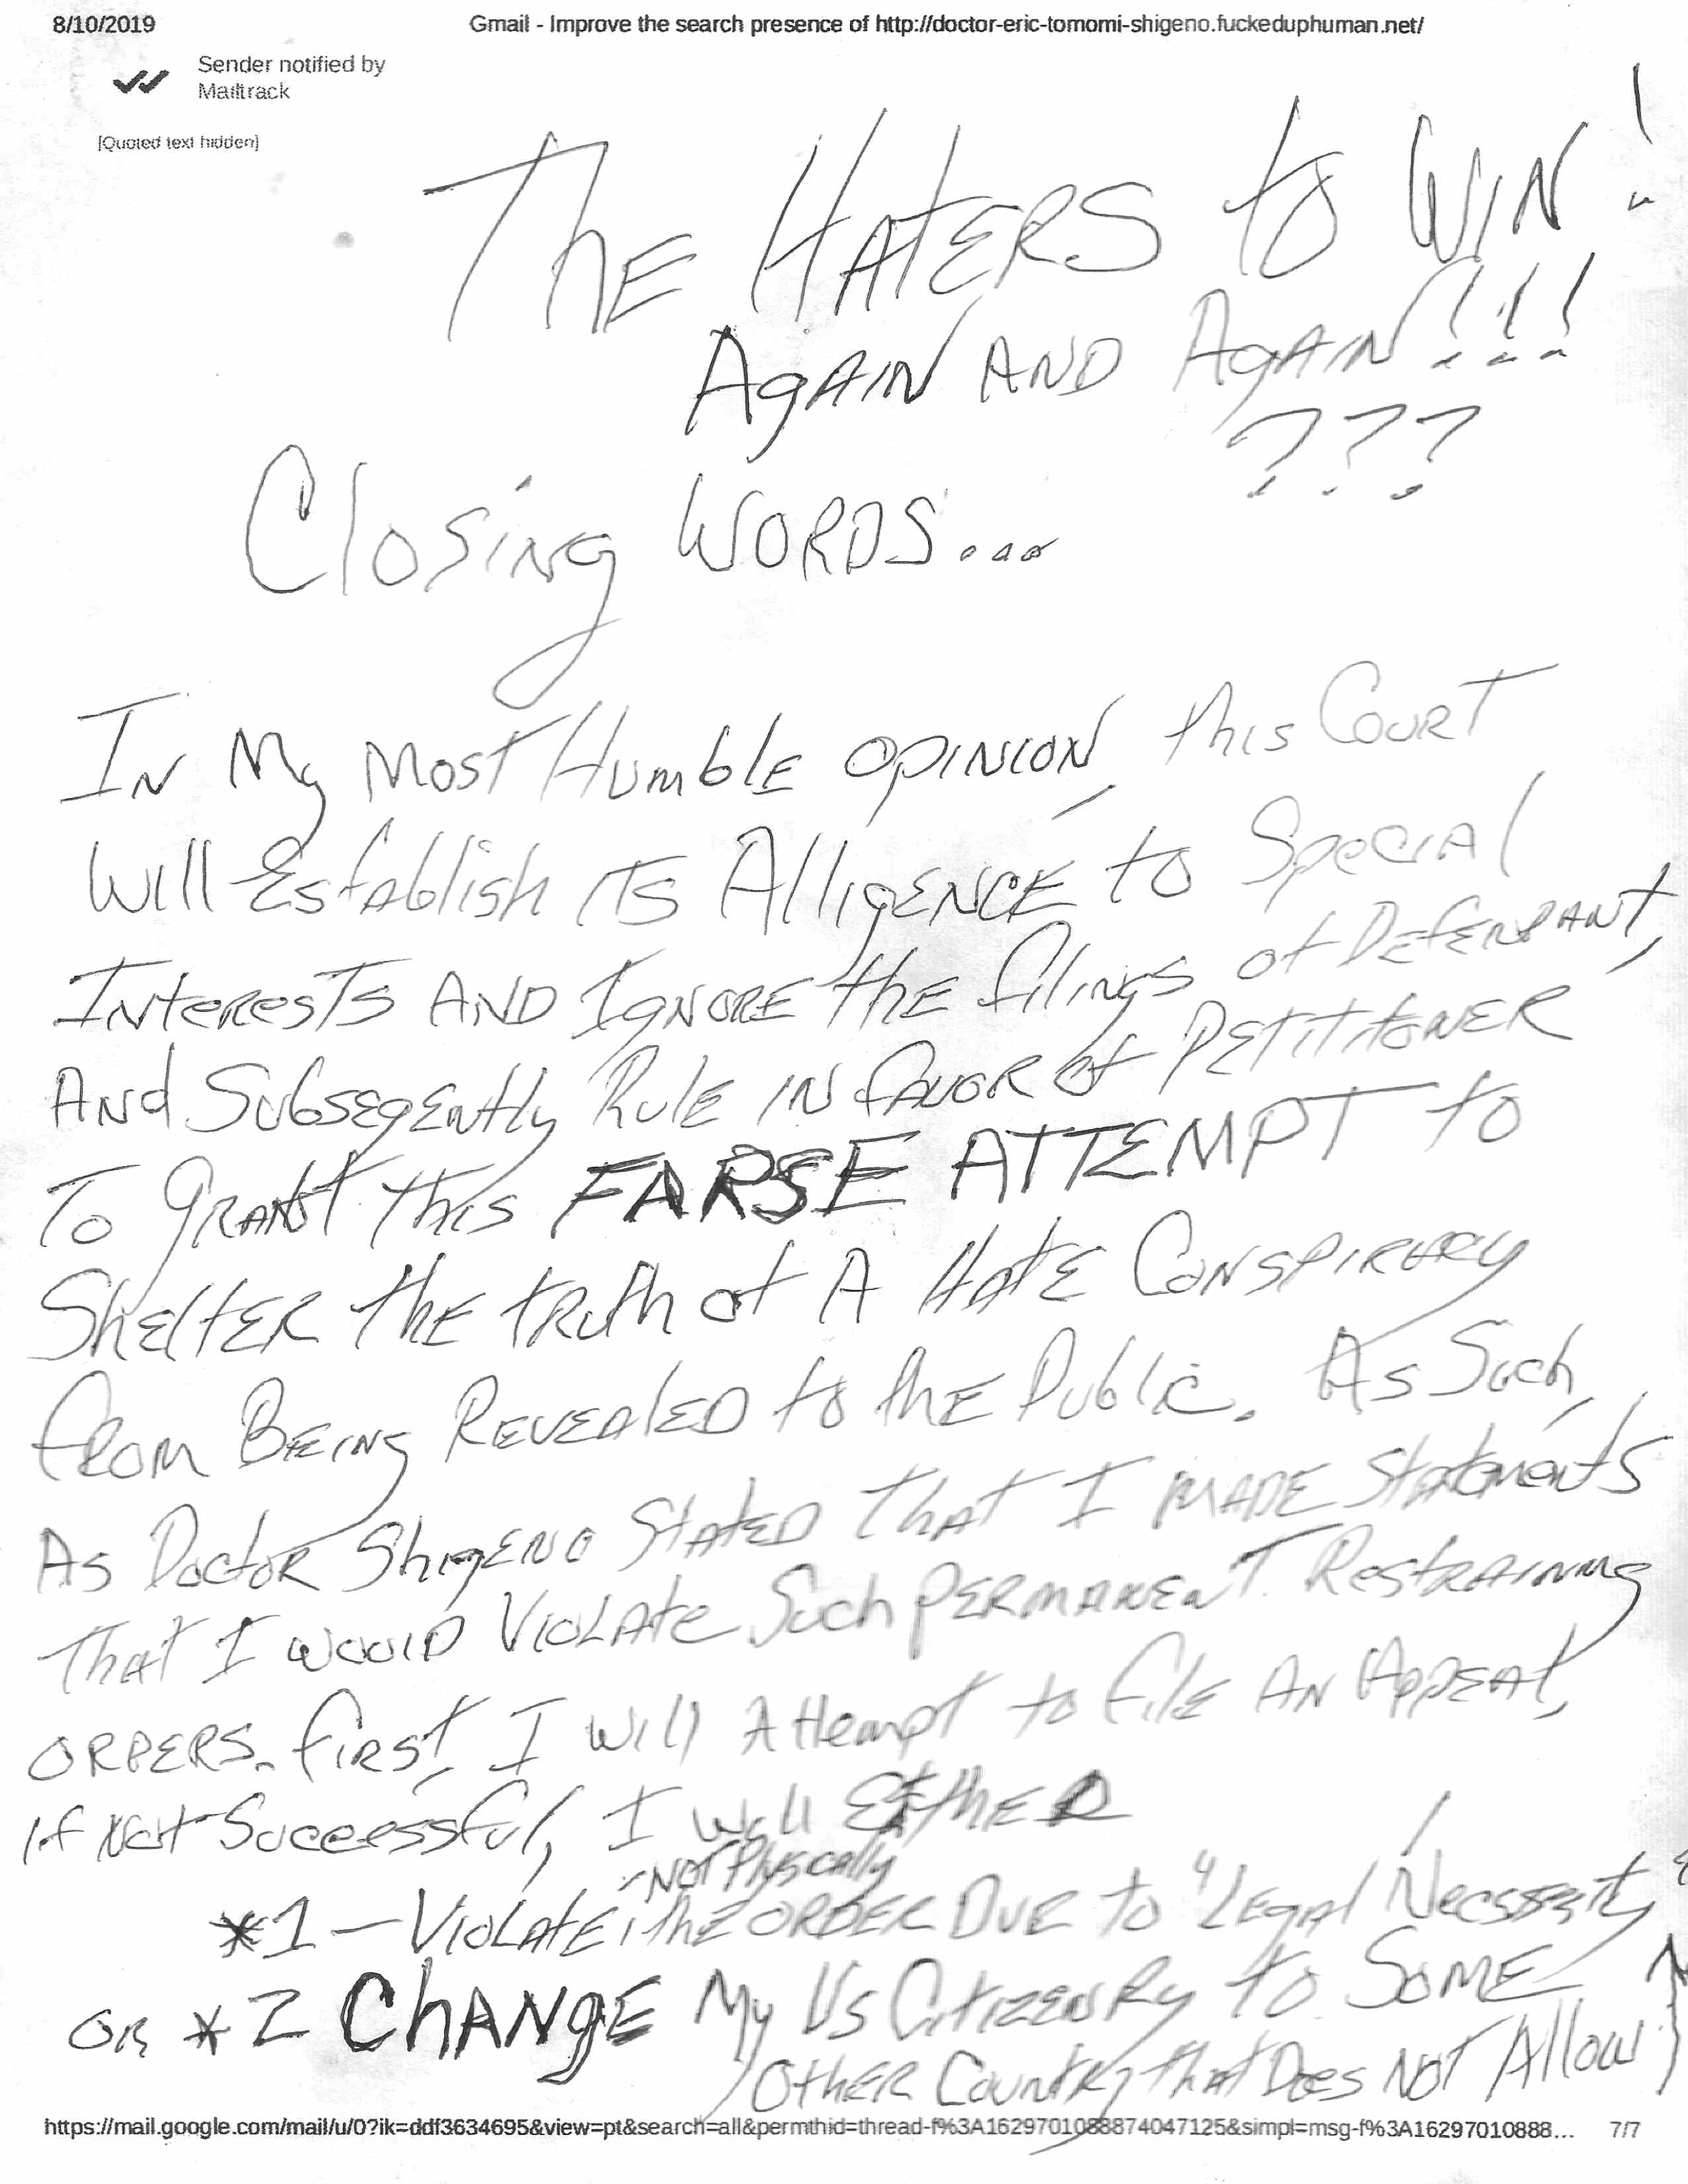 8/10/2019 Gmail - Improve the search presence of http://doctor-eric-tomomi-shigeno.fuckeduphuman.net/
Sender notified by
Mailtrack
[Quoted text hidden]
The HATERS to WIN!
AgAIN AND AgAIN!!!
???
Closing WORDS....
IN My Most Humble OPINION, this Court
Will Establish ITS AlligENCE to Special
Interests AND IgNORE the filings of Defendant,
And Subseqently Rule IN favor of PETITIONER
To grant this FARSE ATTEMPT to
Shelter the truth of A Hate Conspiracy
from Being Revealed to the Public. As Such,
As Doctor Shigeno Stated That I MADE Statements
That I would Violate Such PERMANENT Restraining
ORDERS. First, I will Attempt to file AN Appeal,
If Not Successful, I will Either
- Not Physically
*1 - Violate the ORDER Due to "Legal
OR *2 ChANgE My Us Citizenry to Some
Other Country that Does Not Allow
https://mail.google.com/mail/u/0?ik=ddf3634695&view=pt&search=all&permthid=thread-f%3A1629701088874047125&simpl=msg-f%3A16297010888... 7/7